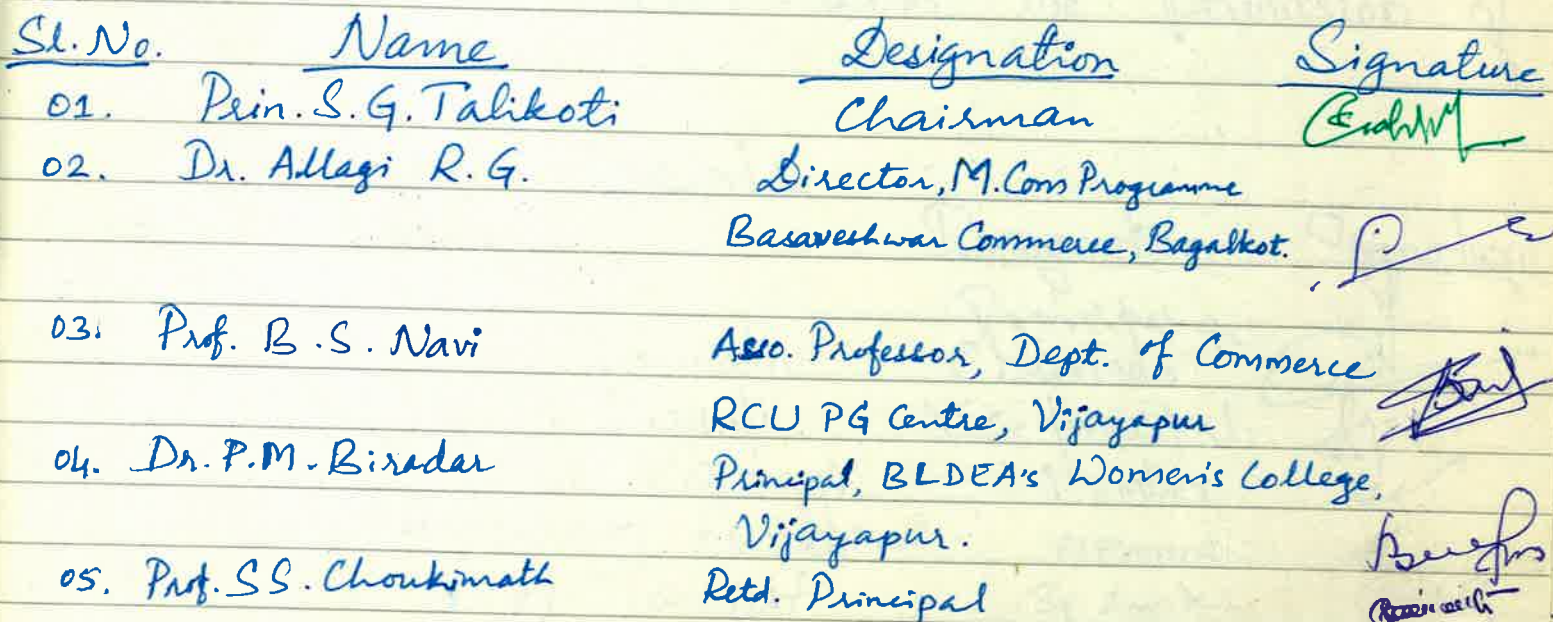 Sl. No. Name Designation Signature
01. Prin. S. G. Talikoti Chairman
02. Dr. Allagi R. G. Director, M.Com Programme
Basaveshwar Commerce, Bagalkot.
03. Prof. B. S. Navi Asso. Professor, Dept. of Commerce
RCU PG Centre, Vijayapur
04. Dr. P. M. Biradar Principal, BLDEA's Women's College,
Vijayapur.
05. Prof. S S. Choukimath Retd. Principal